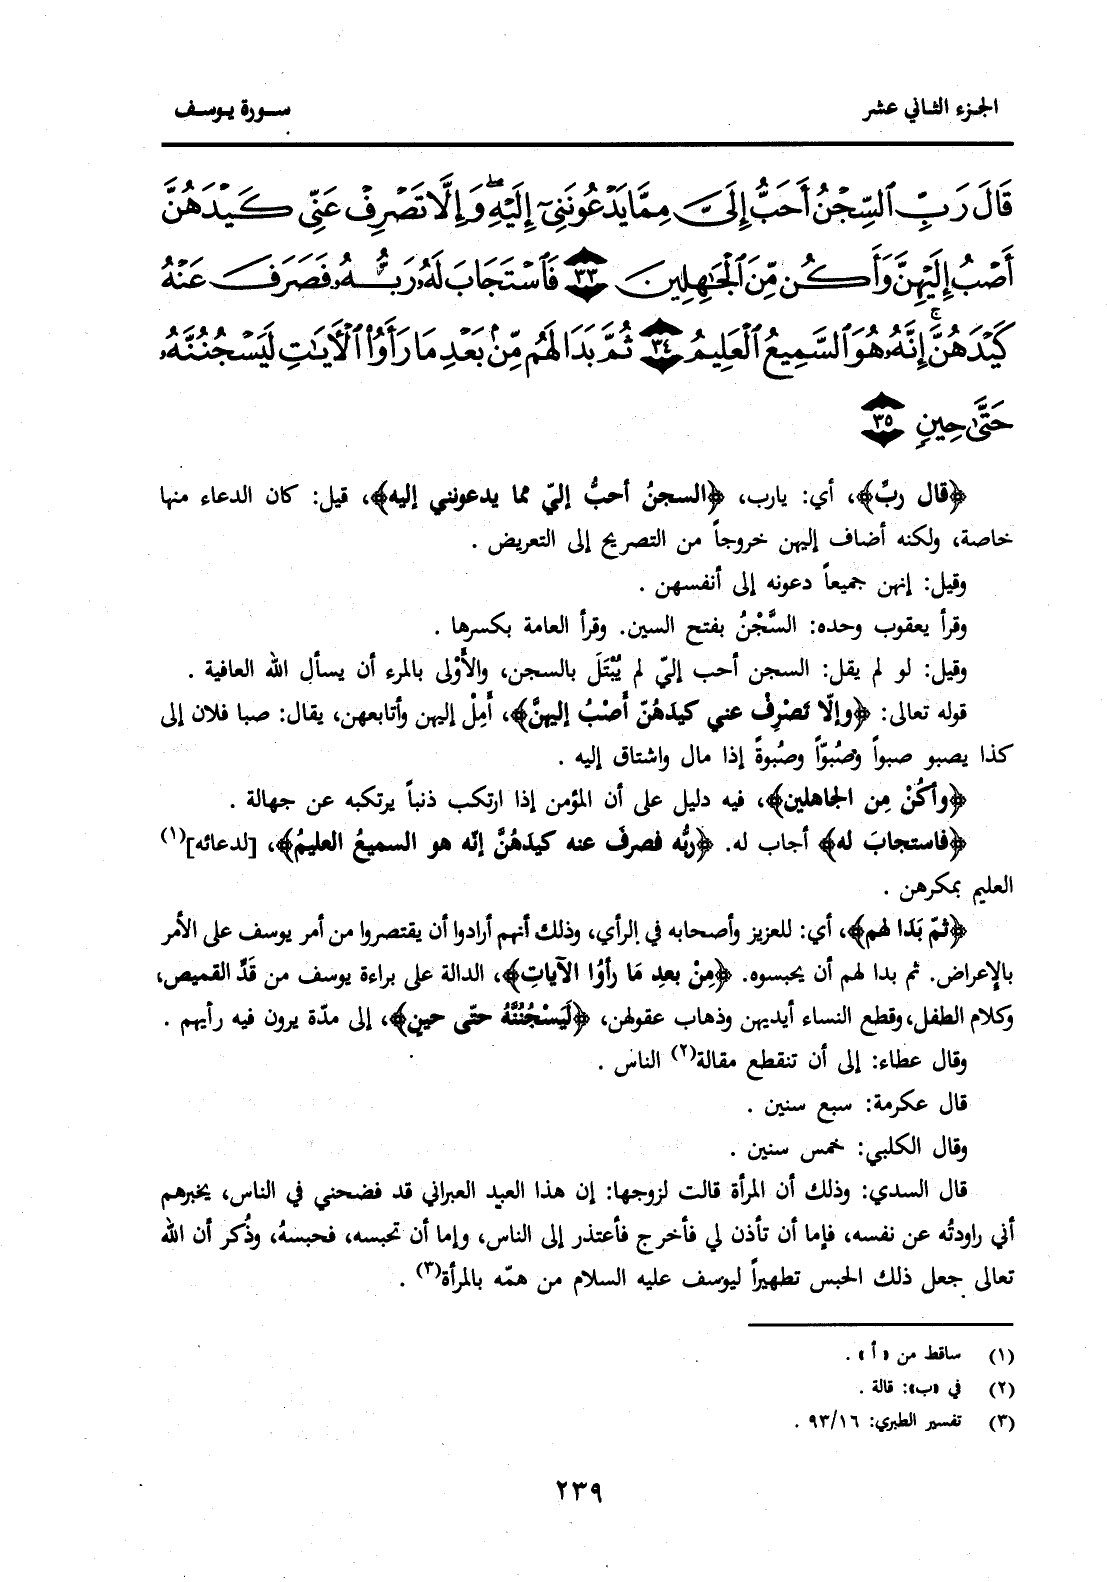 الجزء الثاني عشر
سورة يوسف
قَالَ رَبِّ ٱلسِّجْنُ أَحَبُّ إِلَىَّ مِمَّا يَدْعُونَنِىٓ إِلَيْهِ ۖ وَإِلَّا تَصْرِفْ عَنِّى كَيْدَهُنَّ
أَصْبُ إِلَيْهِنَّ وَأَكُن مِّنَ ٱلْجَٰهِلِينَ ٣٣ فَٱسْتَجَابَ لَهُۥ رَبُّهُۥ فَصَرَفَ عَنْهُ
كَيْدَهُنَّ ۚ إِنَّهُۥ هُوَ ٱلسَّمِيعُ ٱلْعَلِيمُ ٣٤ ثُمَّ بَدَا لَهُم مِّنۢ بَعْدِ مَا رَأَوُا۟ ٱلْأَيَٰتِ لَيَسْجُنُنَّهُۥ
حَتَّىٰ حِينٍ ٣٥
﴿قال ربِّ﴾، أي: يارب، ﴿السجنُ أحبُّ إليّ مما يدعونني إليه﴾، قيل: كان الدعاء منها
خاصة، ولكنه أضاف إليهن خروجاً من التصريح إلى التعريض .
وقيل: إنهن جميعاً دعونه إلى أنفسهن .
وقرأ يعقوب وحده: السَّجْنُ بفتح السين. وقرأ العامة بكسرها .
وقيل: لو لم يقل: السجن أحب إليّ لم يُبْتَلَ بالسجن، والأَوْلى بالمرء أن يسأل الله العافية .
قوله تعالى: ﴿وإلّا تَصْرِفْ عني كيدَهُنّ أَصْبُ إليهنَّ﴾، أَمِلْ إليهن وأتابعهن، يقال: صبا فلان إلى
كذا يصبو صبواً وصُبوّاً وصُبوةً إذا مال واشتاق إليه .
﴿وأكُنْ مِن الجاهلين﴾، فيه دليل على أن المؤمن إذا ارتكب ذنباً يرتكبه عن جهالة .
﴿فاستجابَ له﴾ أجاب له. ﴿ربُّه فصرفَ عنه كيدَهُنَّ إنّه هو السميعُ العليمُ﴾، [لدعائه](١)
العليم بمكرهن .
﴿ثمّ بَدَا لهم﴾، أي: للعزيز وأصحابه في الرأي، وذلك أنهم أرادوا أن يقتصروا من أمر يوسف على الأمر
بالإعراض. ثم بدا لهم أن يحبسوه. ﴿مِنْ بعدِ مَا رأوُا الآياتِ﴾، الدالة على براءة يوسف من قَدِّ القميص،
وكلام الطفل، وقطع النساء أيديهن وذهاب عقولهن، ﴿لَيَسْجُنُنَّهُ حتّى حينٍ﴾، إلى مدّة يرون فيه رأيهم .
وقال عطاء: إلى أن تنقطع مقالة(٢) الناس .
قال عكرمة: سبع سنين .
وقال الكلبي: خمس سنين .
قال السدي: وذلك أن المرأة قالت لزوجها: إن هذا العبد العبراني قد فضحني في الناس، يخبرهم
أني راودتُه عن نفسه، فإما أن تأذن لي فأخرج فأعتذر إلى الناس، وإما أن تحبسه، فحبسهُ، وذُكر أن الله
تعالى جعل ذلك الحبس تطهيراً ليوسف عليه السلام من همّه بالمرأة(٣) .
(١) ساقط من «أ» .
(٢) في «ب»: قالة .
(٣) تفسير الطبري: ٩٣/١٦ .
٢٣٩